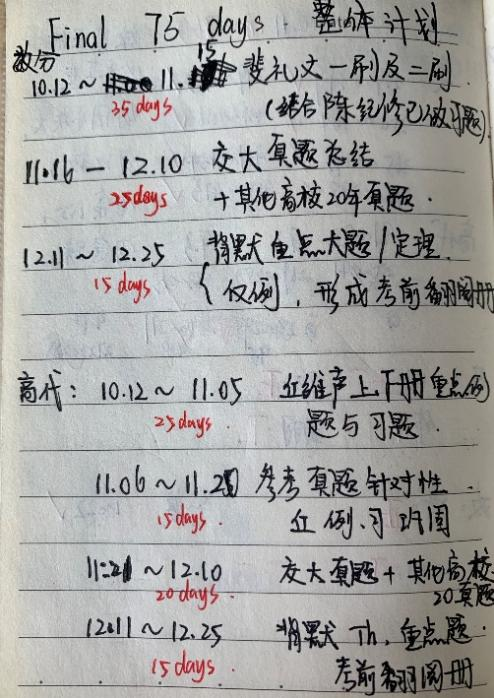 Final 75 days. 整体计划
数分
10.12 ~ 11.15 斐礼文一刷及二刷
35 days (结合陈纪修已做习题)
11.16 — 12.10 交大真题总结
25days +其他高校20年真题.
12.11 ~ 12.25 背默重点大题/定理.
15 days 反例, 形成考前翻阅册
高代: 10.12 ~ 11.05 丘维声上下册重点例
25days. 题与习题.
11.06 ~ 11.20 参考真题针对性.
15days. 丘例.习巩固
11.21 ~ 12.10 交大真题 + 其他高校
20 days. 20真题
12.11 ~ 12.25 背默 Th, 重点题.
15 days. 考前翻阅册